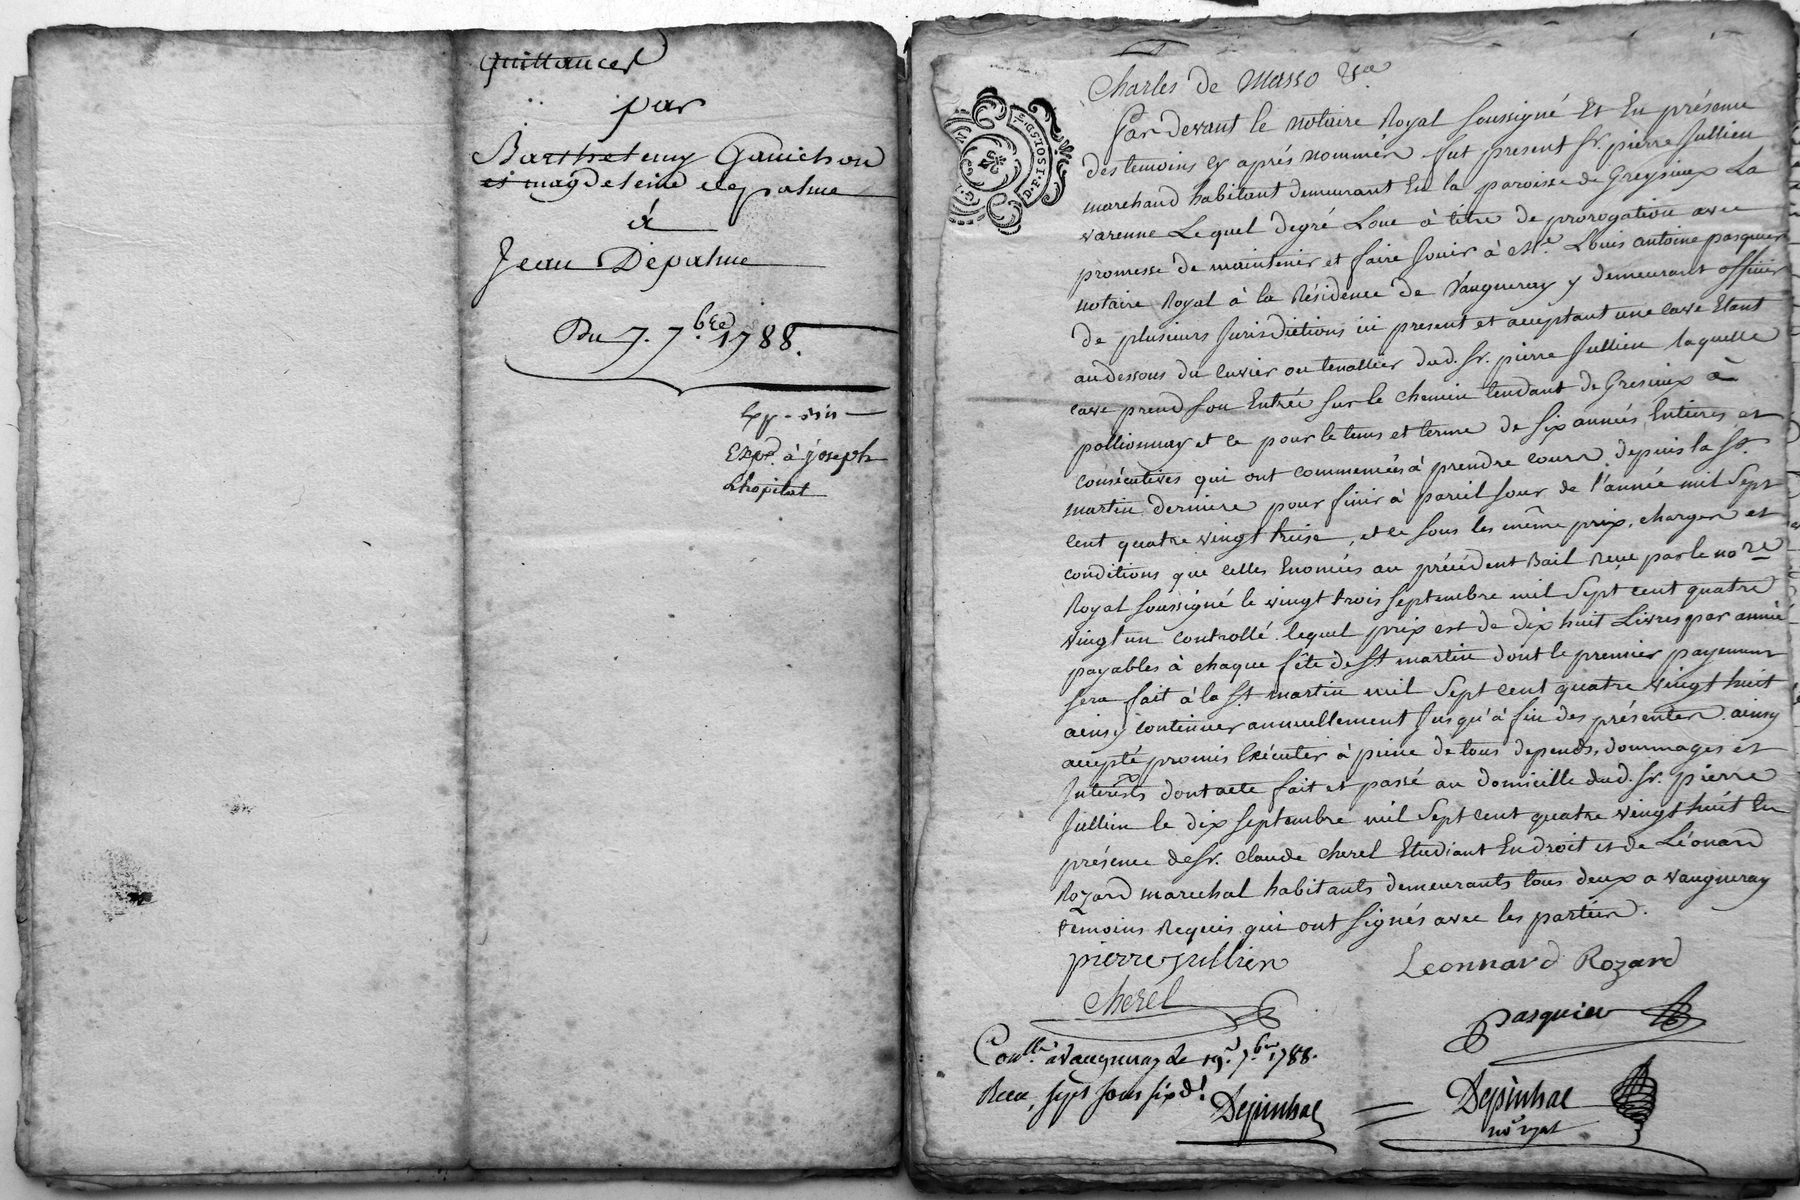 Quittances
par
Barthelemy Ganichon
et magdeleine depalme
à
Jean Depalme
Du 7. 7.bre 1788.
Exp.ée à joseph
Lhopital
Charles de Masso
Par devant le notaire Royal soussigné Et En présence
des temoins cy aprés nommés fut present Sr. pierre Jullien
marchand habitant demeurant En la paroisse de Greysieux La
varenne Lequel de gré Loue à titre de prorogation avec
promesse de maintenir et faire jouir à Me. Louis antoine pasquier
notaire Royal à la Résidence de Vaugneray y demeurant officier
de plusieurs Jurisdictions ici present et acceptant une cave Etant
au dessous du cuvier ou tenallier dud. Sr. pierre Jullien laquelle
cave prend son Entrée sur le chemin tendant de Gresieux à
pollionnay et ce pour le tems et terme de six années Entieres et
consécutives qui ont commencées à prendre cours depuis la St.
martin derniere pour finir à pareil jour de l'année mil Sept
cent quatre vingt treise, et ce sous les même prix, charges et
conditions que celles Enoncées au précédent Bail Reçu par le nore
Royal soussigné le vingt trois septembre mil Sept cent quatre
vingt un controllé. lequel prix est de dix huit Livres par année
payables à chaque fête de St martin dont le premier payement
sera fait à la St. martin mil Sept cent quatre vingt huit
ainsy continuer annuellement Jusqu'à fin des présentes. ainsy
accepté promis Exécuter à peine de tous depends, dommages et
Interêts dont acte fait et passé au domicille dud. Sr. pierre
Jullien le dix septembre mil Sept cent quatre vingt huit En
présence de Sr. Claude Cherel Etudiant En droit et de Léonard
Rozard marechal habitants demeurants tous deux a vaugneray
temoins Requis qui ont signés avec les parties.
pierre jullien Leonnard Rozard
Cherel
pasquier
Conllé à Vaugneray le 19. 7.bre 1788.
Recu, sept sous six d.
Depinhac Depinhac
nore. ryal